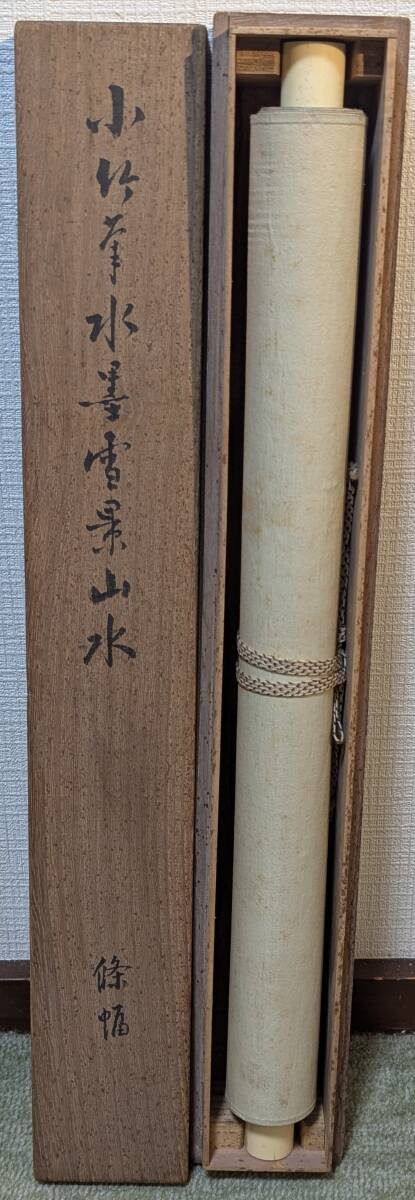 小竹筆水墨雪景山水
條幅